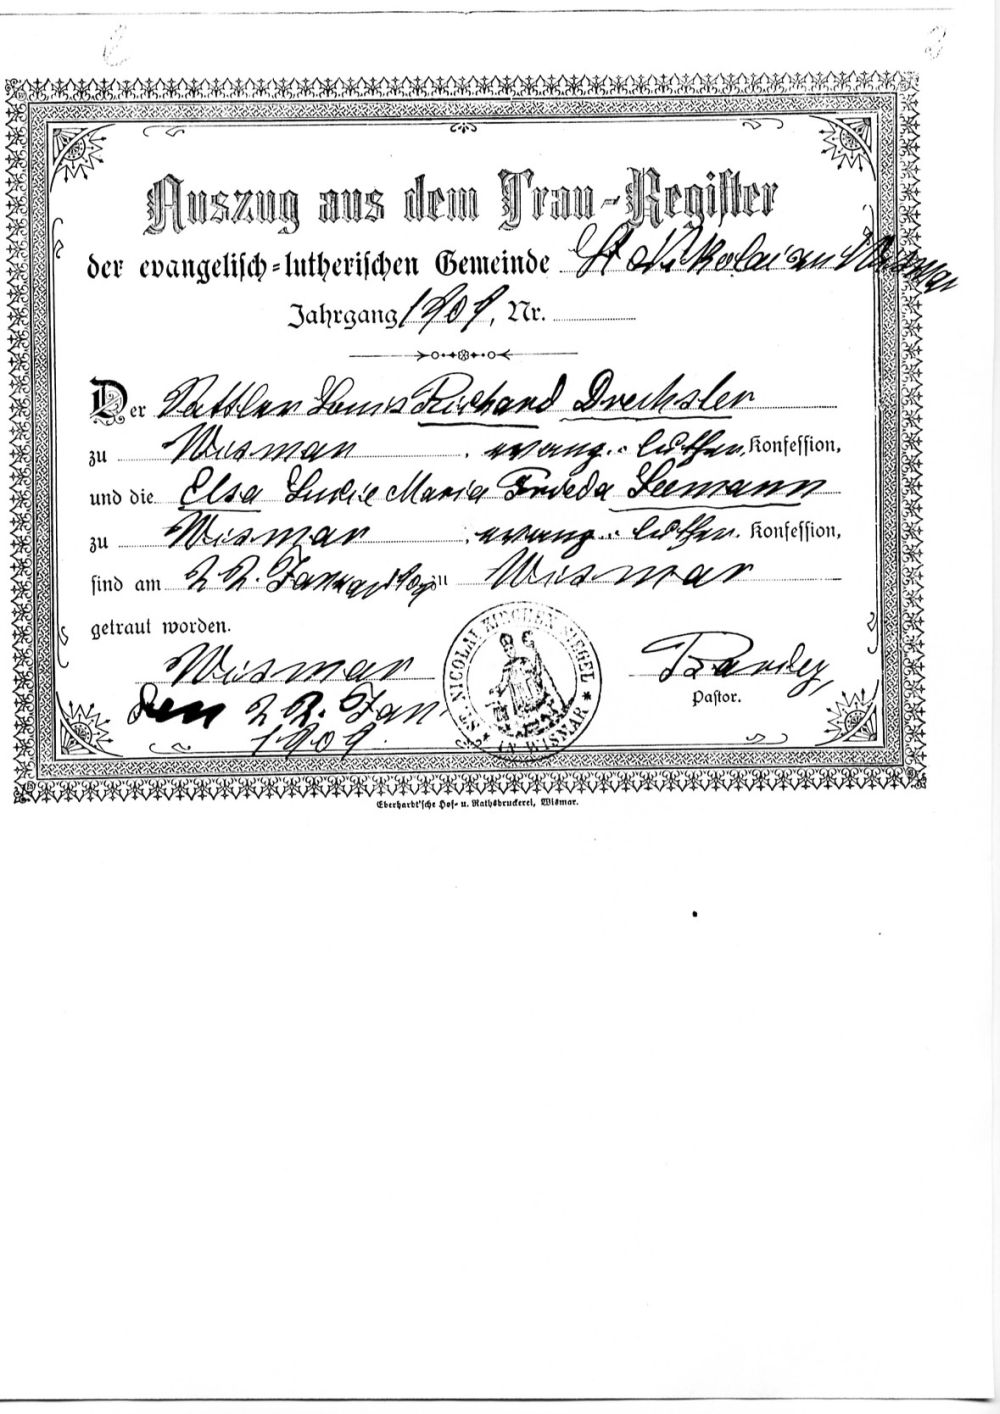 Auszug aus dem Trau-Register
der evangelisch-lutherischen Gemeinde St Nikolai zu Wismar
Jahrgang 1909, Nr.
Der Sattler Louis Richard Drechsler
zu Wismar, evang.-luther. Konfession,
und die Elsa Lucie Maria Frieda Seemann
zu Wismar, evang.-luther. Konfession,
sind am 22. Januar 1909 zu Wismar
getraut worden.
Wismar
den 22. Jan.
1909.
ST. NICOLAI KIRCHEN SIEGEL * IN WISMAR *
Pastor.
Eberhardt'sche Hof- u. Rathsbruckerei, Wismar.